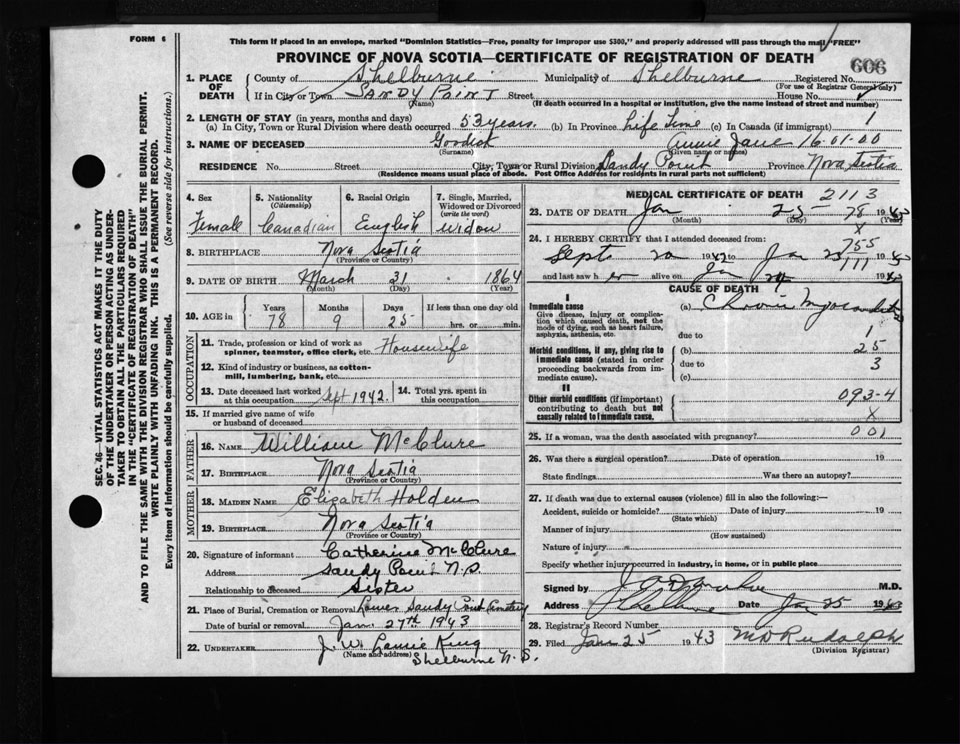 FORM 6
This form if placed in an envelope, marked "Dominion Statistics—Free, penalty for improper use $300," and properly addressed will pass through the mail "FREE"
PROVINCE OF NOVA SCOTIA—CERTIFICATE OF REGISTRATION OF DEATH
606
1. PLACE OF DEATH { County of Shelburne Municipality of Shelburne Registered No.
(For use of Registrar General only)
If in City or Town SANDY POINT Street House No.
(Name) (If death occurred in a hospital or institution, give the name instead of street and number)
2. LENGTH OF STAY (in years, months and days)
(a) In City, Town or Rural Division where death occurred 53 years. (b) In Province Life Time (c) In Canada (if immigrant) 1
3. NAME OF DECEASED Goodick Annie Jane 16-01-00
(Surname) (Given name or names)
RESIDENCE No. Street City, Town or Rural Division Sandy Point Province Nova Scotia
(Residence means usual place of abode. Post Office Address for residents in rural parts not sufficient)
4. Sex Female
5. Nationality (Citizenship) Canadian
6. Racial Origin English
7. Single, Married, Widowed or Divorced (write the word) Widow
8. BIRTHPLACE Nova Scotia
(Province or Country)
9. DATE OF BIRTH March 31 1864
(Month) (Day) (Year)
10. AGE in { Years 78 Months 9 Days 25 If less than one day old hrs. or min.
OCCUPATION
11. Trade, profession or kind of work as spinner, teamster, office clerk, etc. Housewife
12. Kind of industry or business, as cotton-mill, lumbering, bank, etc.
13. Date deceased last worked at this occupation Sept 1942
14. Total yrs. spent in this occupation
15. If married give name of wife or husband of deceased
FATHER
16. NAME William McClure
17. BIRTHPLACE Nova Scotia
(Province or Country)
MOTHER
18. MAIDEN NAME Elizabeth Holden
19. BIRTHPLACE Nova Scotia
(Province or Country)
20. Signature of informant Catherine McClure
Address Sandy Point N.S.
Relationship to deceased Sister
21. Place of Burial, Cremation or Removal Lower Sandy Point Cemetery
Date of burial or removal Jan. 27th 1943
22. UNDERTAKER J. W. King
(Name and address)
Shelburne N.S.
MEDICAL CERTIFICATE OF DEATH 2113
23. DATE OF DEATH Jan 25 78 1943
(Month) (Day) (Year)
X
24. I HEREBY CERTIFY that I attended deceased from:
755
Sept 20 1942 to Jan 25 1943
111
and last saw her alive on Jan 24 1943
CAUSE OF DEATH
I
Immediate cause
Give disease, injury or complication which caused death, not the mode of dying, such as heart failure, asphyxia, asthenia, etc.
(a) Chronic Myocarditis
due to 1
Morbid conditions, if any, giving rise to immediate cause (stated in order proceeding backwards from immediate cause).
(b) 25
due to 3
(c)
II
Other morbid conditions (if important) contributing to death but not causally related to immediate cause.
093-4
X
25. If a woman, was the death associated with pregnancy? 001
26. Was there a surgical operation? Date of operation 19
State findings Was there an autopsy?
27. If death was due to external causes (violence) fill in also the following:—
Accident, suicide or homicide? Date of injury 19
(State which)
Manner of injury
(How sustained)
Nature of injury
Specify whether injury occurred in industry, in home, or in public place
Signed by M.D.
Address Shelburne Date Jan 25 1943
28. Registrar's Record Number
29. Filed Jan 25 1943 M D Rudolph
(Division Registrar)
SEC. 46—VITAL STATISTICS ACT MAKES IT THE DUTY
OF THE UNDERTAKER OR PERSON ACTING AS UNDER-
TAKER TO OBTAIN ALL THE PARTICULARS REQUIRED
IN THE "CERTIFICATE OF REGISTRATION OF DEATH"
AND TO FILE THE SAME WITH THE DIVISION REGISTRAR WHO SHALL ISSUE THE BURIAL PERMIT.
WRITE PLAINLY WITH UNFADING INK. THIS IS A PERMANENT RECORD.
Every item of information should be carefully supplied. (See reverse side for instructions.)